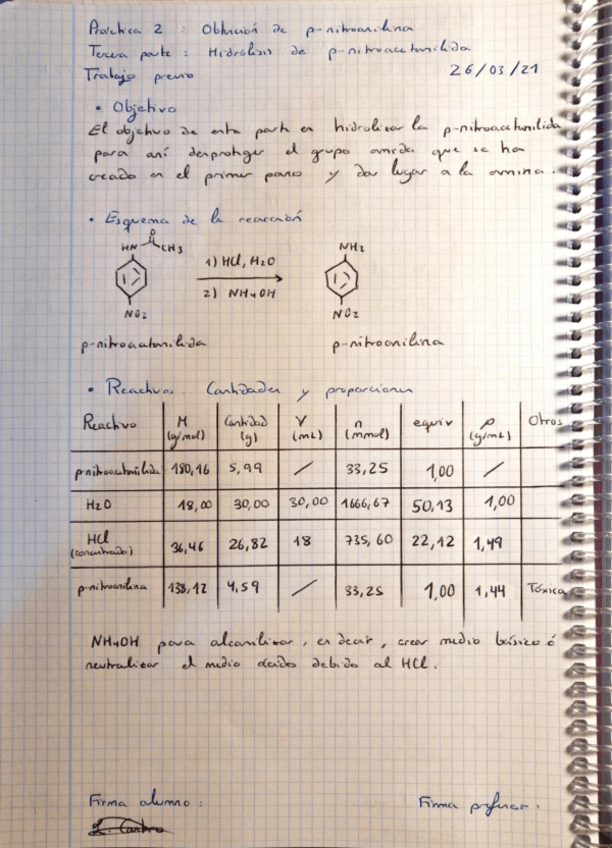 Práctica 2 : Obtención de p-nitroanilina
Tercera parte : Hidrólisis de p-nitroacetanilida
Trabajo previo 26/03/21
• Objetivo
El objetivo de esta parte es hidrolizar la p-nitroacetanilida
para así desproteger el grupo amida que se ha
creado en el primer paso y dar lugar a la amina.
• Esquema de la reacción
HN O CH3 NH2
1) HCl, H2O
2) NH4OH
NO2 NO2
p-nitroacetanilida p-nitroanilina
• Reactivos. Cantidades y proporciones
Reactivo M (g/mol) Cantidad (g) V (mL) n (mmol) equiv ρ (g/mL) Otros
p-nitroacetanilida 180,16 5,99 / 33,25 1,00 /
H2O 18,00 30,00 30,00 1666,67 50,13 1,00
HCl (concentrado) 36,46 26,82 18 735,60 22,12 1,49
p-nitroanilina 138,12 4,59 / 33,25 1,00 1,44 Tóxica
NH4OH para alcanilizar, es decir, crear medio básico ó
neutralizar el medio ácido debido al HCl.
Firma alumno : Firma profesor :